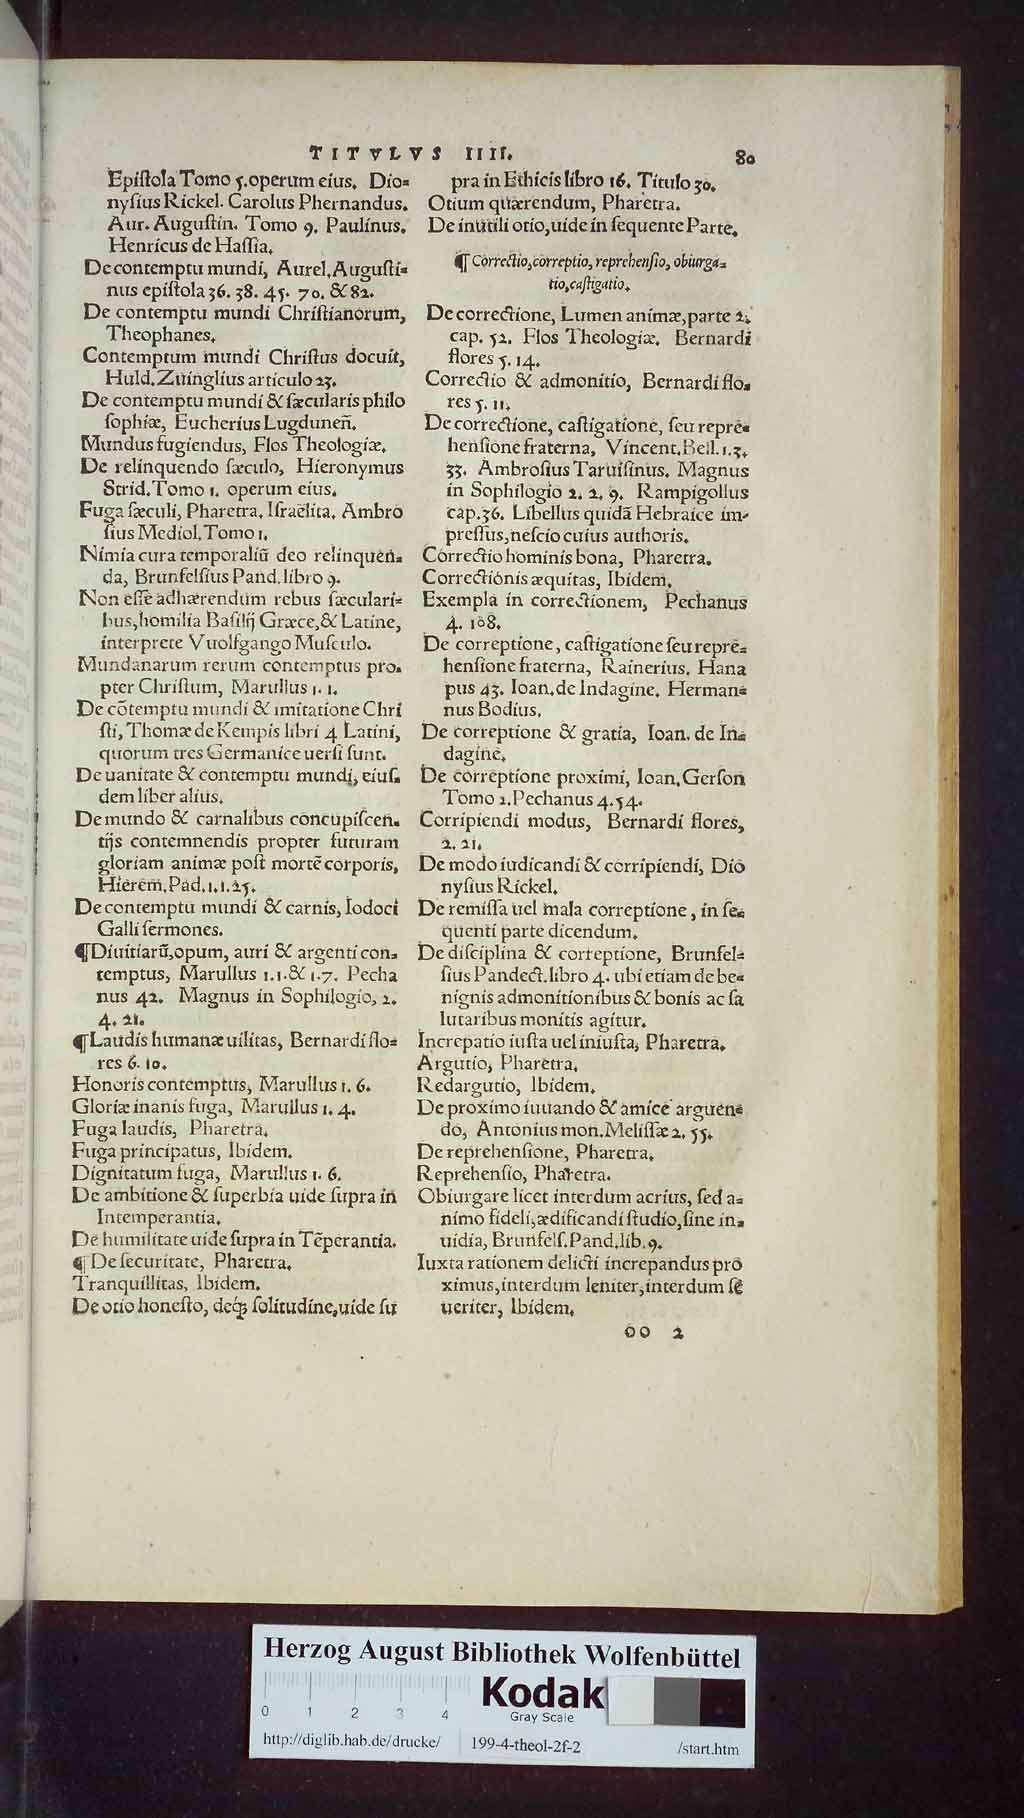 TITVLVS IIII. 80
Epiſtola Tomo 5. operum eius. Dio=
nyſius Rickel. Carolus Phernandus.
Aur. Auguſtin. Tomo 9. Paulinus.
Henricus de Haſſia.
De contemptu mundi, Aurel. Auguſti=
nus epiſtola 36. 38. 45. 70. & 82.
De contemptu mundi Chriſtianorum,
Theophanes.
Contemptum mundi Chriſtus docuit,
Huld. Zuinglius articulo 23.
De contemptu mundi & ſæcularis philo
ſophiæ, Eucherius Lugduneñ.
Mundus fugiendus, Flos Theologiæ.
De relinquendo ſæculo, Hieronymus
Strid. Tomo 1. operum eius.
Fuga ſæculi, Pharetra. Iſraëlita. Ambro
ſius Mediol. Tomo 1.
Nimia cura temporaliū deo relinquen=
da, Brunfelſius Pand. libro 9.
Non eſſe adhærendum rebus ſæculari=
bus, homilia Baſilij Græce, & Latine,
interprete Vuolfgango Muſculo.
Mundanarum rerum contemptus pro=
pter Chriſtum, Marullus 1. 1.
De cōtemptu mundi & imitatione Chri
ſti, Thomæ de Kempis libri 4 Latini,
quorum tres Germanice uerſi ſunt.
De uanitate & contemptu mundi, eiuſ=
dem liber alius.
De mundo & carnalibus concupiſcen=
tijs contemnendis propter futuram
gloriam animæ poſt mortē corporis,
Hierem. Pad. 1. 1. 25.
De contemptu mundi & carnis, Iodoci
Galli ſermones.
¶ Diuitiarū, opum, auri & argenti con=
temptus, Marullus 1. 1. & 1. 7. Pecha
nus 42. Magnus in Sophilogio, 2.
4. 21.
¶ Laudis humanæ uilitas, Bernardi flo=
res 6. 10.
Honoris contemptus, Marullus 1. 6.
Gloriæ inanis fuga, Marullus 1. 4.
Fuga laudis, Pharetra.
Fuga principatus, Ibidem.
Dignitatum fuga, Marullus 1. 6.
De ambitione & ſuperbia uide ſupra in
Intemperantia.
De humilitate uide ſupra in Tēperantia.
¶ De ſecuritate, Pharetra.
Tranquillitas, Ibidem.
De otio honeſto, deq; ſolitudine, uide ſu
pra in Ethicis libro 16. Titulo 30.
Otium quærendum, Pharetra.
De inutili otio, uide in ſequente Parte.
¶ Correctio, correptio, reprehenſio, obiurga=
tio, caſtigatio.
De correctione, Lumen animæ, parte 2.
cap. 52. Flos Theologiæ. Bernardi
flores 5. 14.
Correctio & admonitio, Bernardi flo=
res 5. 11.
De correctione, caſtigatione, ſeu repre=
henſione fraterna, Vincent. Bell. 1. 3.
33. Ambroſius Taruiſinus. Magnus
in Sophilogio 2. 2. 9. Rampigollus
cap. 36. Libellus quidā Hebraice im=
preſſus, neſcio cuius authoris.
Correctio hominis bona, Pharetra.
Correctionis æquitas, Ibidem.
Exempla in correctionem, Pechanus
4. 108.
De correptione, caſtigatione ſeu repre=
henſione fraterna, Rainerius. Hana
pus 43. Ioan. de Indagine. Herman=
nus Bodius.
De correptione & gratia, Ioan. de In=
dagine.
De correptione proximi, Ioan. Gerſon
Tomo 2. Pechanus 4. 54.
Corripiendi modus, Bernardi flores,
2. 21.
De modo iudicandi & corripiendi, Dio
nyſius Rickel.
De remiſſa uel mala correptione, in ſe=
quenti parte dicendum.
De diſciplina & correptione, Brunfel=
ſius Pandect. libro 4. ubi etiam de be=
nignis admonitionibus & bonis ac ſa
lutaribus monitis agitur.
Increpatio iuſta uel iniuſta, Pharetra.
Argutio, Pharetra.
Redargutio, Ibidem.
De proximo iuuando & amice arguen=
do, Antonius mon. Meliſſæ 2. 55.
De reprehenſione, Pharetra.
Reprehenſio, Pharetra.
Obiurgare licet interdum acrius, ſed a=
nimo fideli, ædificandi ſtudio, ſine in=
uidia, Brunfelſ. Pand. lib. 9.
Iuxta rationem delicti increpandus pro
ximus, interdum leniter, interdum ſe
ueriter, Ibidem.
oo 2
Herzog August Bibliothek Wolfenbüttel
0 1 2 3 4
Kodak
Gray Scale
http://diglib.hab.de/drucke/ 199-4-theol-2f-2 /start.htm